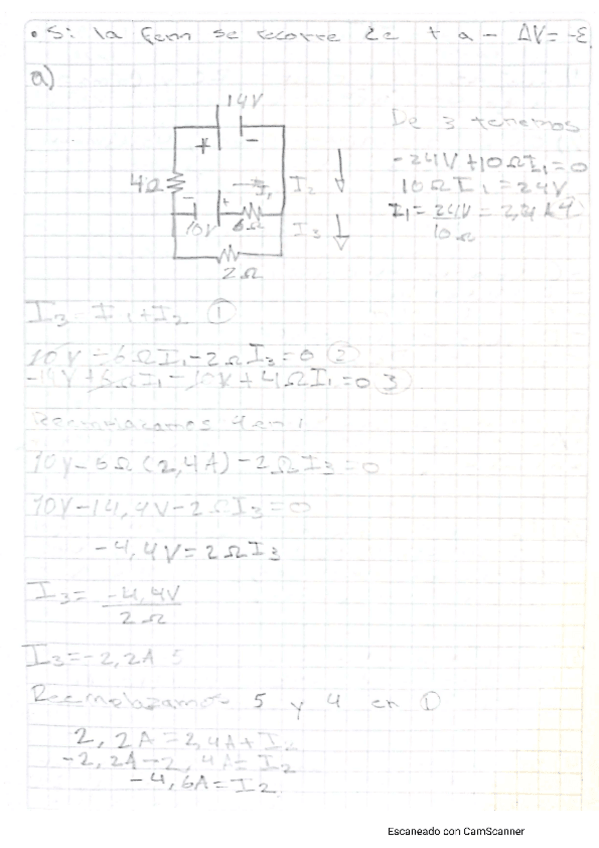 • Si la fem se recorre de + a - ΔV= -ε
a)
14V
+ -
4Ω
I₁
I₂
- +
10V 6Ω
I₃
2Ω
De 3 tenemos
-24V+10ΩI₁=0
10ΩI₁=24V
I₁= 24V = 2,4A 4
10Ω
I₃ = I₁+I₂ ①
10V-6ΩI₁-2ΩI₃=0 ②
-14V+6ΩI₁-10V+4ΩI₁=0 3
Reemplazamos 4 en 1
10V-6Ω(2,4A)-2ΩI₃=0
10V-14,4V-2ΩI₃=0
-4,4V=2ΩI₃
I₃= -4,4V
2Ω
I₃=-2,2A 5
Reemplazamos 5 y 4 en ①
2,2A=2,4A+I₂
-2,2A-2,4A=I₂
-4,6A=I₂
Escaneado con CamScanner